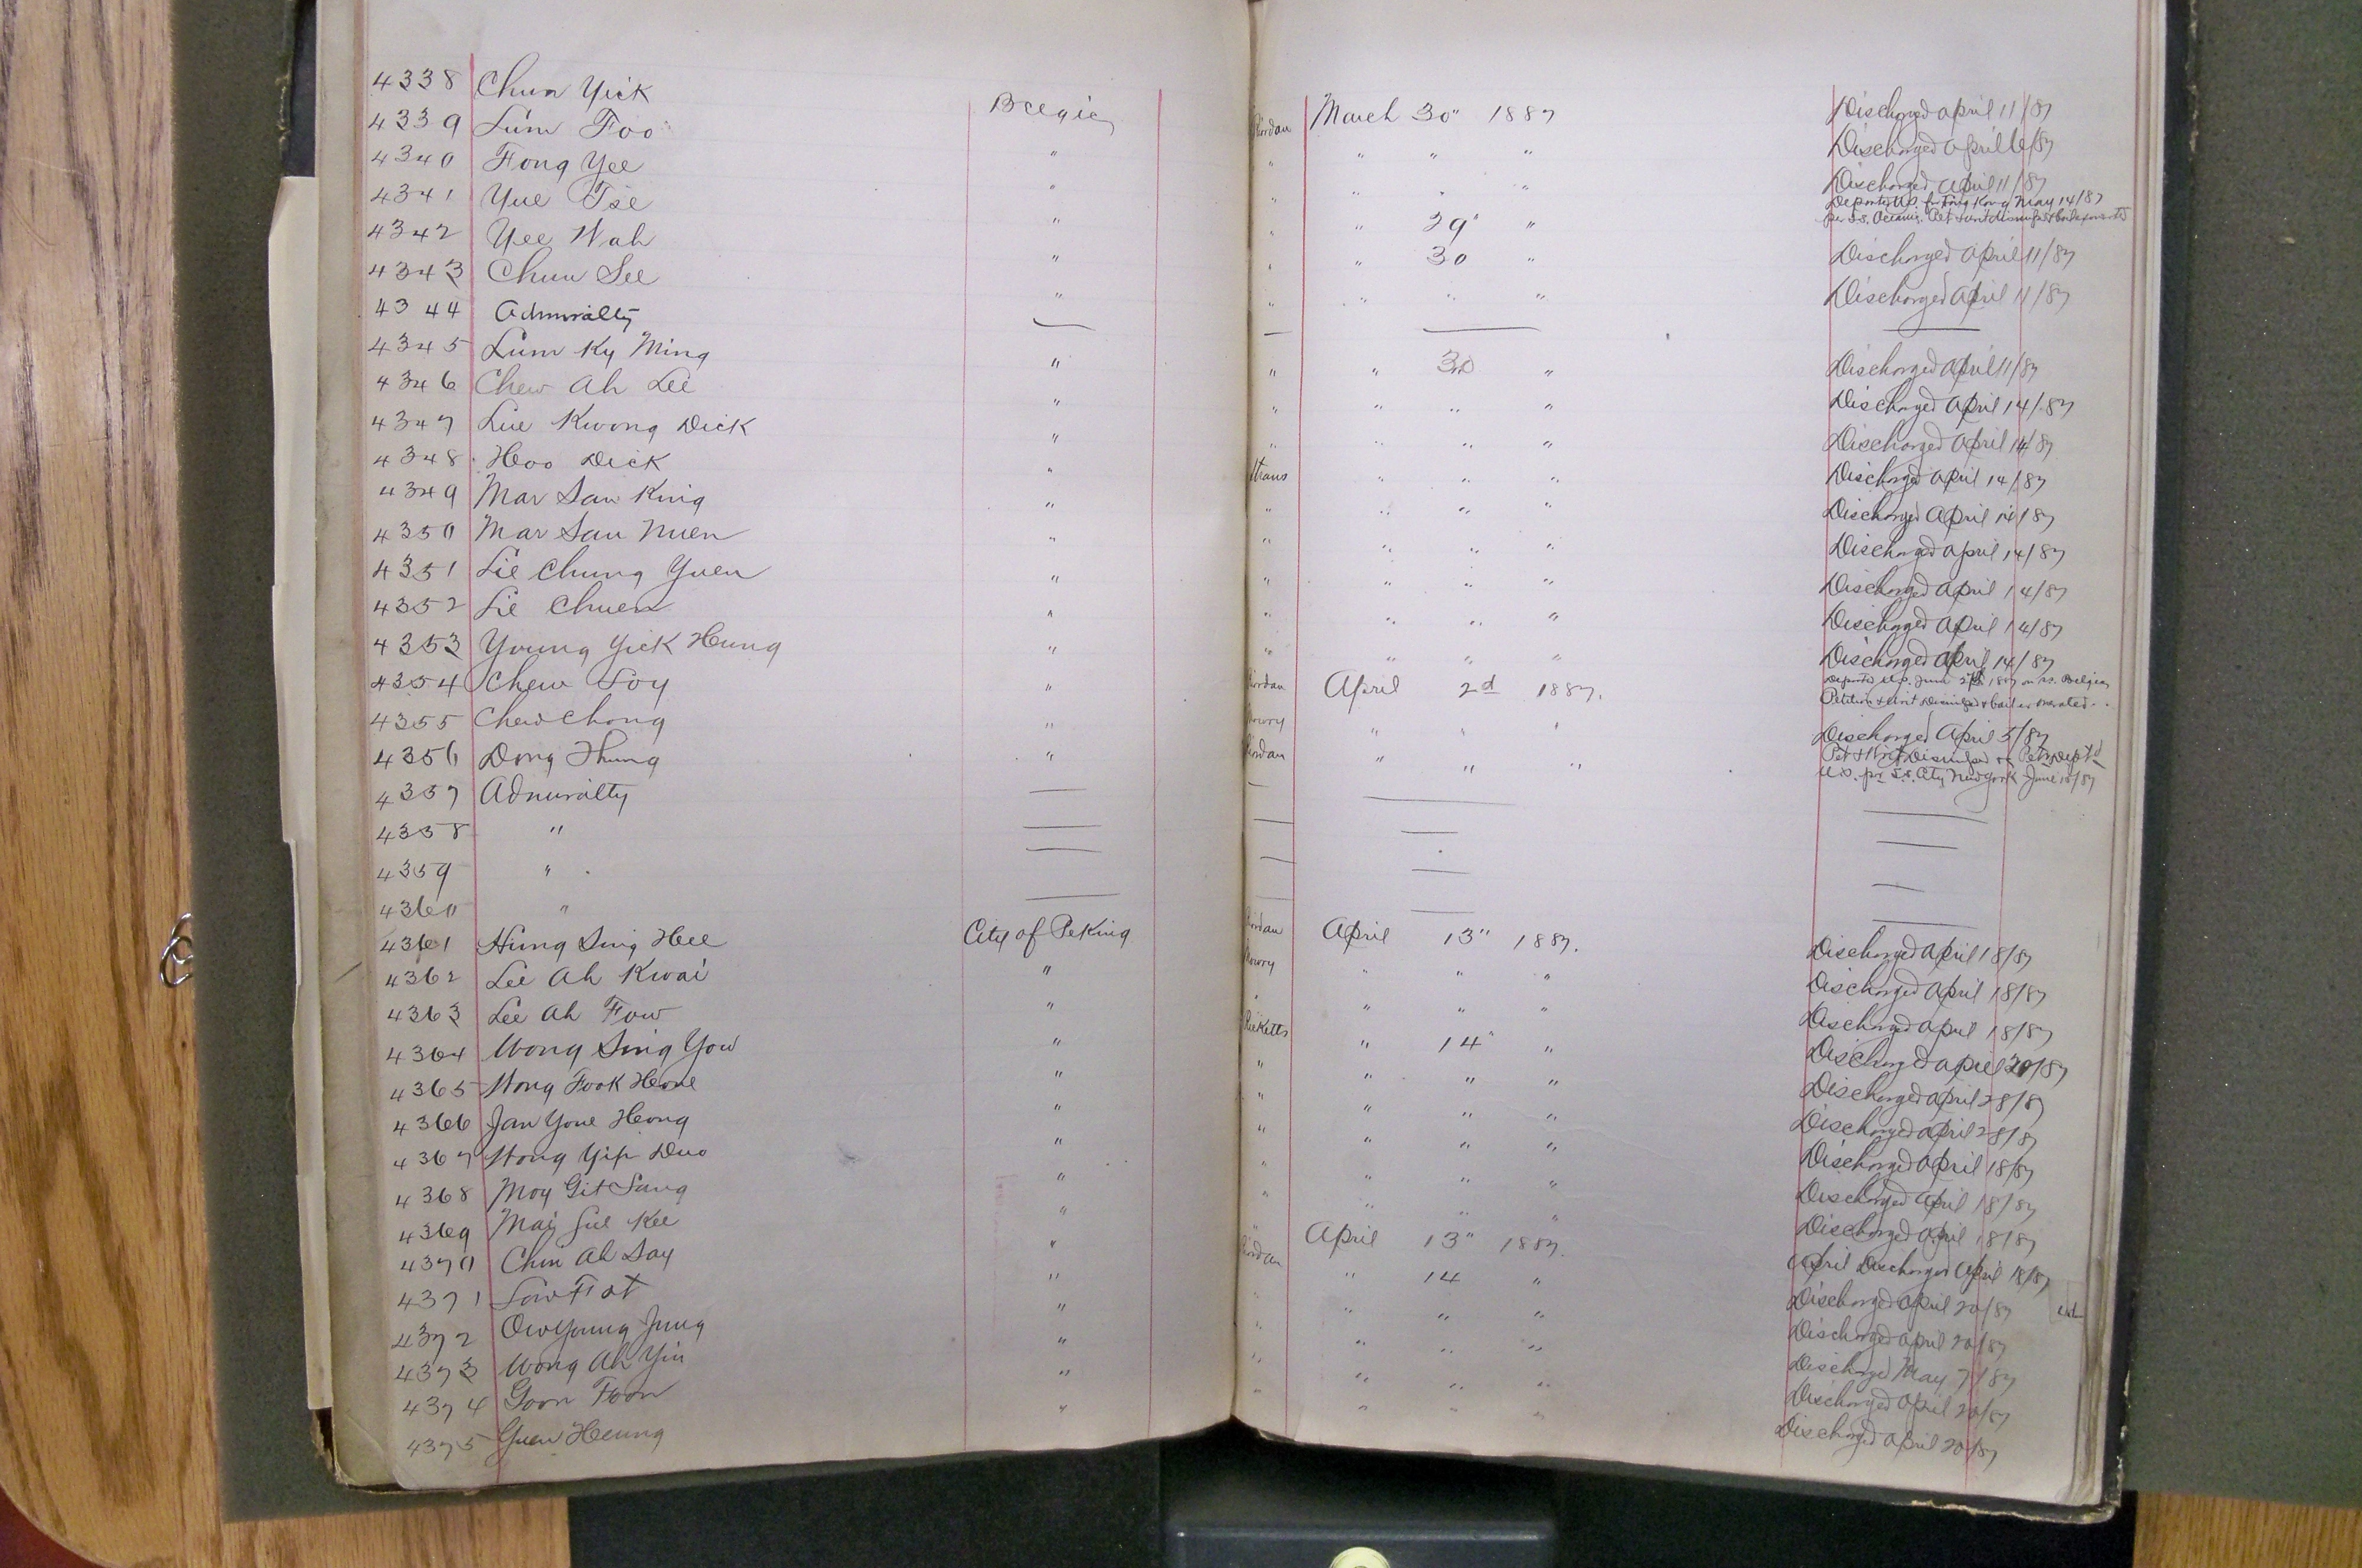 4338 Chun Yick Belgic Riordan March 30" 1887 Discharged April 11/87
4339 Lum Foo " " " " " Discharged April 16/87
4340 Fong Yee " " " " " Discharged April 11/87
4341 Yue Tse " " " 29" " Deported for Hong Kong May 14/87
per S.S. Oceanic. Pet & writ dismissed & bail exonerated
4342 Yee Wah " " " 30 " Discharged April 11/87
4343 Chun See " " " " " Discharged April 11/87
4344 Admiralty
4345 Lum Ky Ming " " " 30 " Discharged April 11/87
4346 Chew Ah Lee " " " " " Discharged April 14/87
4347 Lue Kwong Dick " " " " " Discharged April 14/87
4348 Hoo Dick " " " " Discharged April 14/87
4349 Mar San King " " " " " Discharged April 14/87
4350 Mar Sau Nuen " " " " " Discharged April 14/87
4351 Lie Chung Yuen " " " " " Discharged April 14/87
4352 Lie Chuen " " " " " Discharged April 14/87
4353 Young Yick Hung " " " " " Discharged April 14/87
4354 Chew Foy " Riordan April 2d 1887. Deported U.S. June 1887 on ss. Belgic
Petition & writ Dismissed & bail exonerated
4355 Chew Chong " Mowry " " " Discharged April 5/87
4356 Dong Thung " Riordan " " " Pet & Writ Dismissed & Petr Dept'd
U.S. pr S.S. City New York June /87
4357 Admiralty
4358 "
4359 "
4360 "
4361 Hung Sing Hee City of Peking Riordan April 13" 1887. Discharged April 18/87
4362 Lee Ah Kwai " Mowry " " " Discharged April 18/87
4363 Lee Ah Fow " " " " " Discharged April 18/87
4364 Wong Sing You " Ricketts " 14" " Discharged April 20/87
4365 Wong Fook Heone " " " " " Discharged April 28/87
4366 Jan Yone Heong " " " " " Discharged April 28/87
4367 Wong Yip Duo " " " " " Discharged April 18/87
4368 Moy Git Sang " " " " " Discharged April 18/87
4369 Mai Sue Kee " " " " " Discharged April 18/87
4370 Chin Ah Say " " April 13" 1887. April Discharged April 18/87
4371 Low Fat " Riordan " 14 " Discharged April 20/87
4372 Ow Young Jung " " " " " Discharged April 20/87
4373 Wong Ah Yin " " " " " Discharged May 7/87
4374 Goon Foon " " " " " Discharged April 20/87
4375 Yuen Heung " " " " " Discharged April 20/87